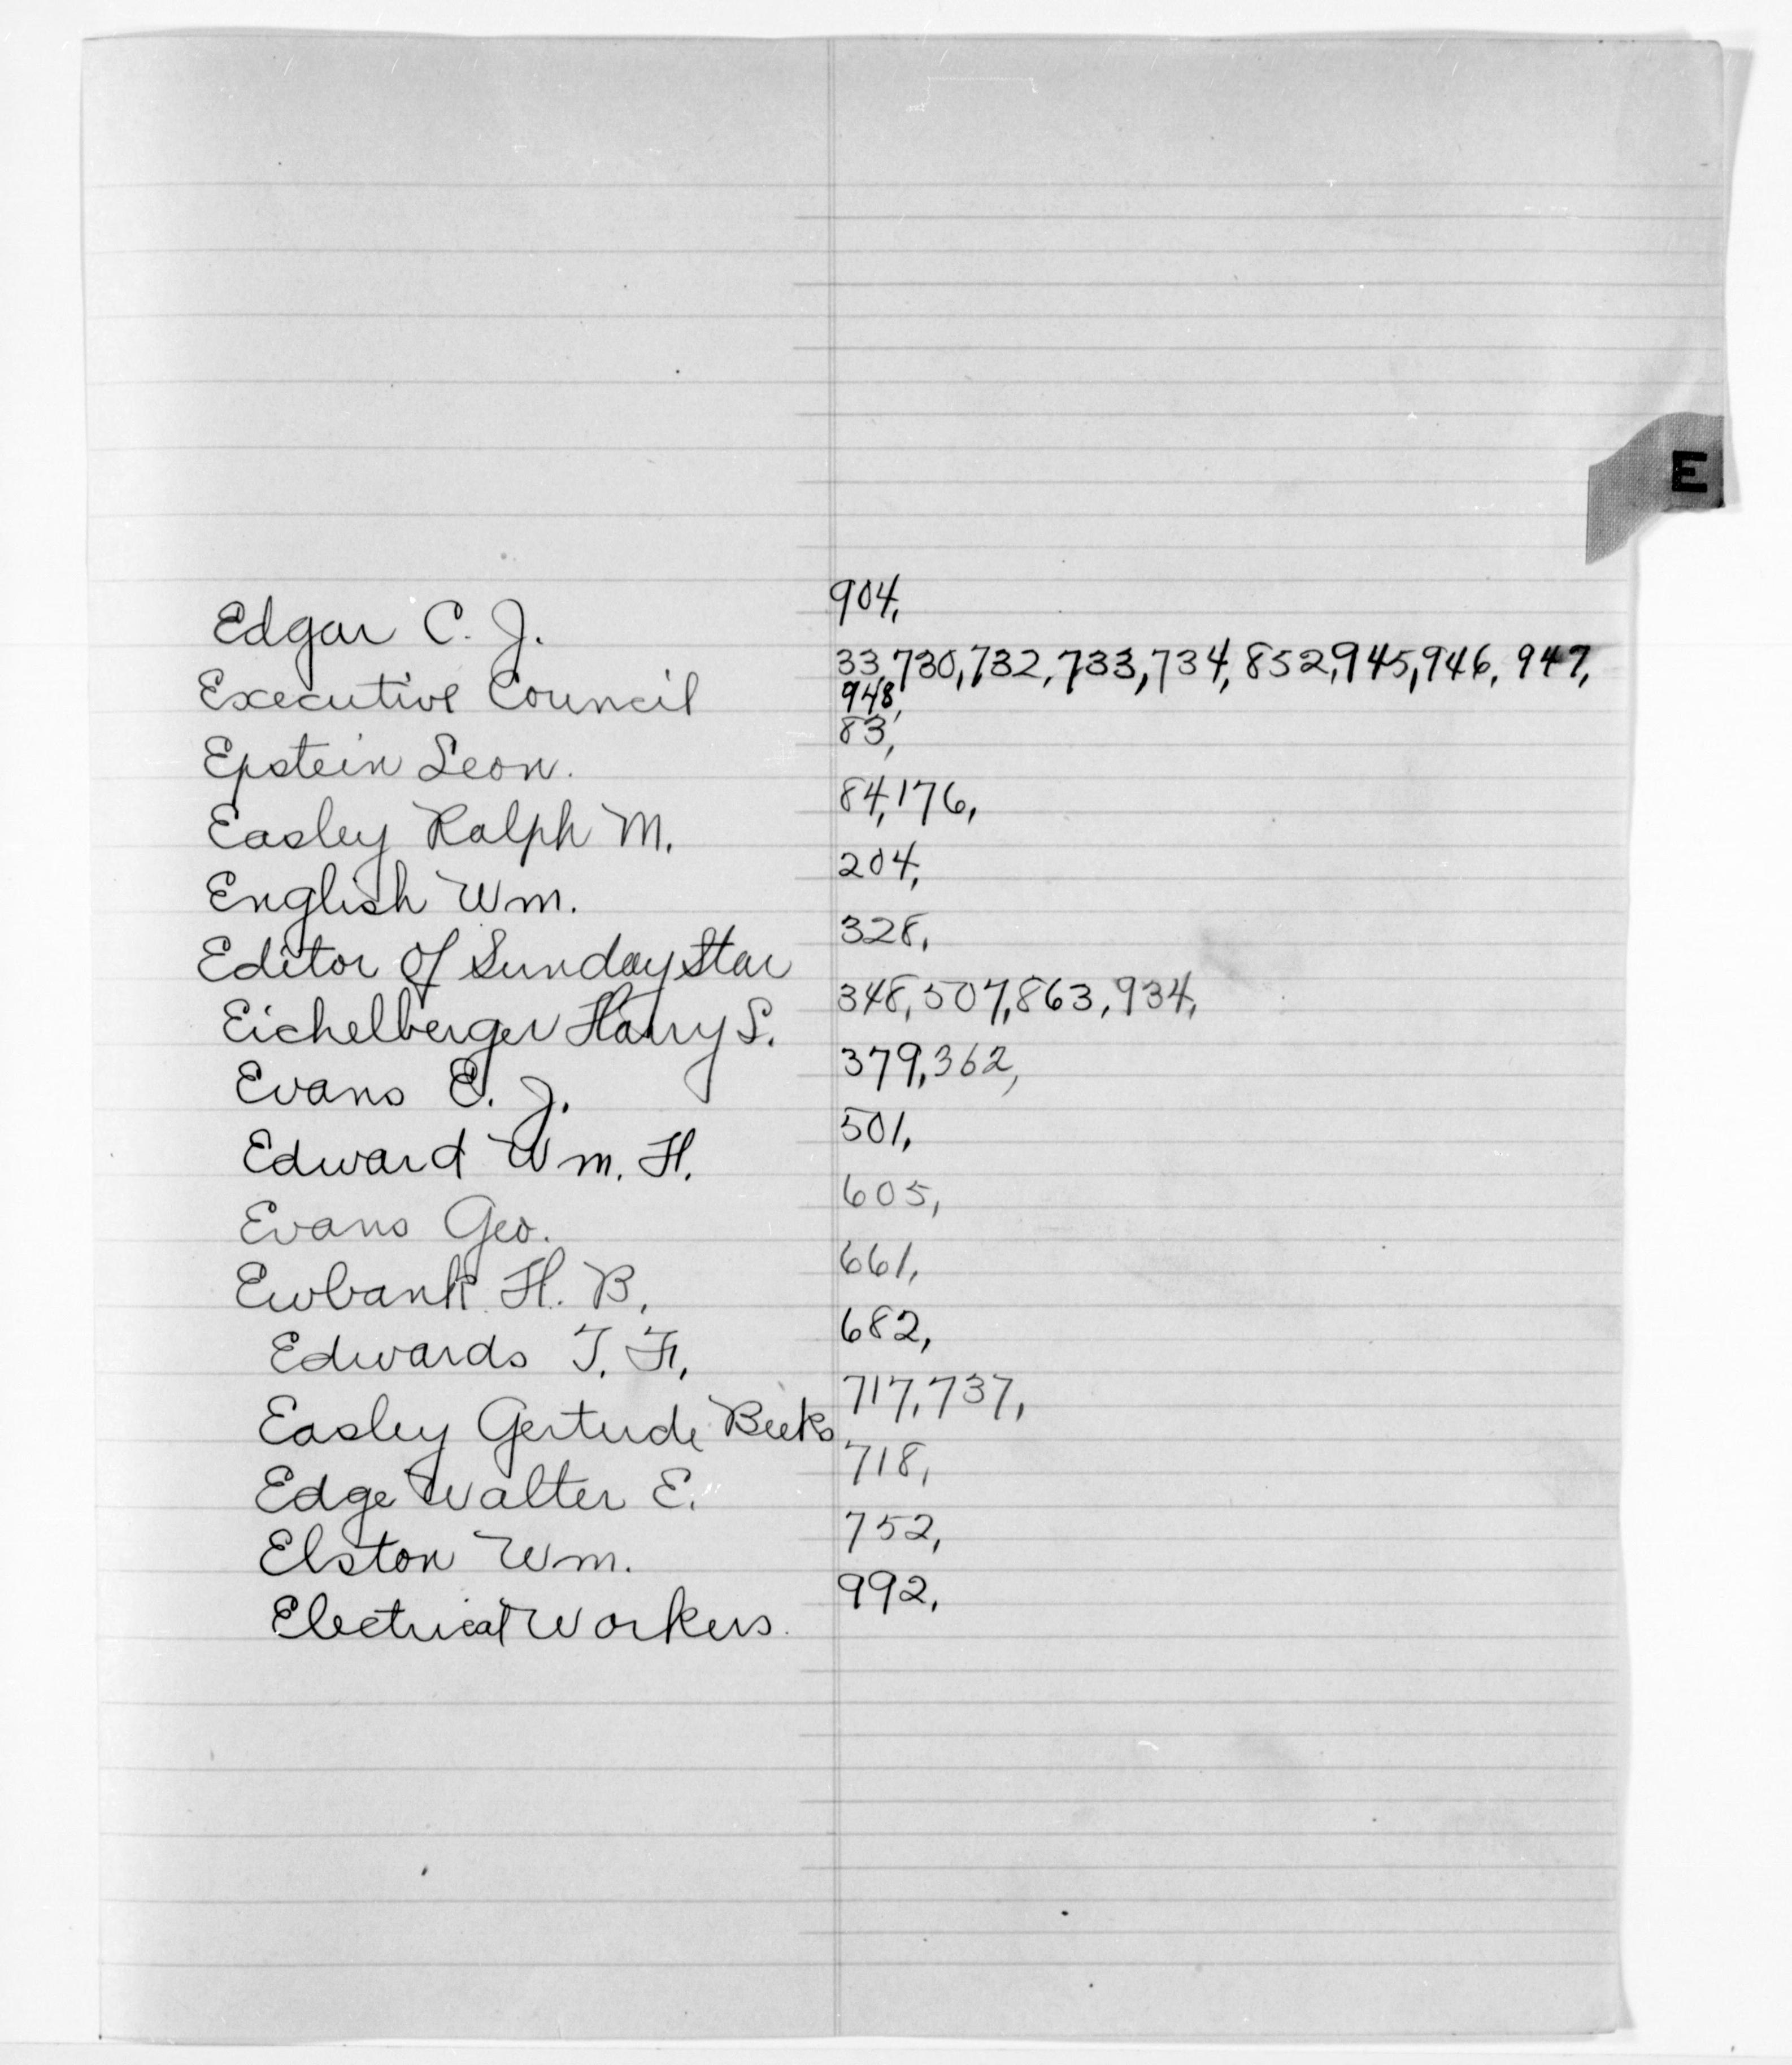 E
Edgar C. J. 904,
Executive Council 33, 730, 732, 733, 734, 852, 945, 946, 947,
948,
Epstein Leon. 83,
Easley Ralph M. 84, 176,
English Wm. 204,
Editor of Sunday Star 328,
Eichelberger Harry S. 348, 507, 863, 934,
Evans E. J. 379, 362,
Edward Wm. H. 501,
Evans Geo. 605,
Ewbank H. B. 661,
Edwards T. F. 682,
Easley Gertrude Beeks 717, 737,
Edge Walter E. 718,
Elston Wm. 752,
Electrical Workers. 992,